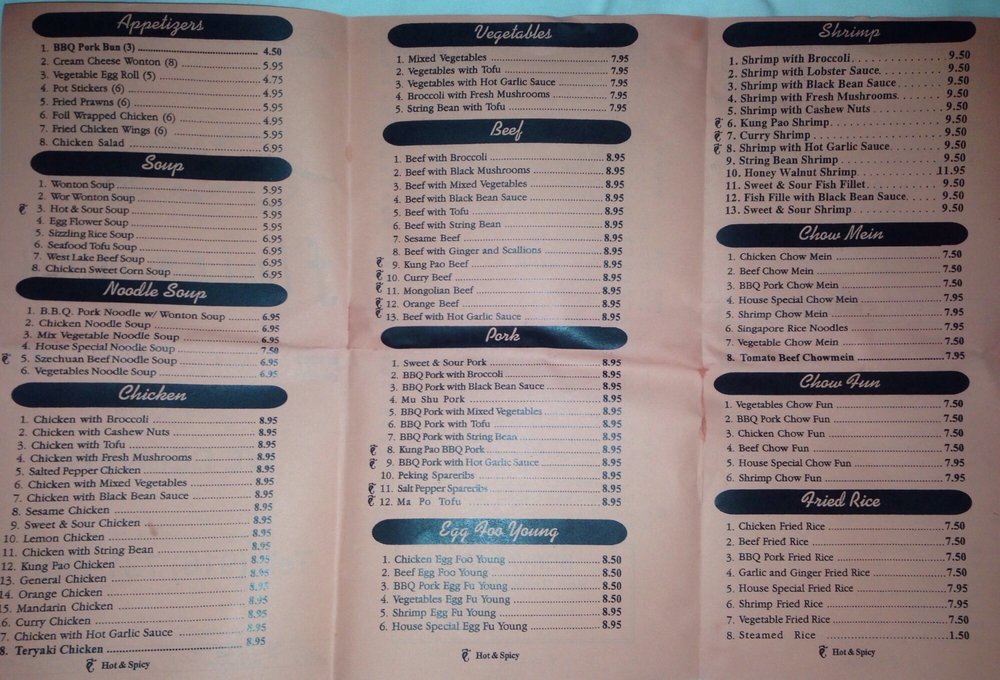 Appetizers
1. BBQ Pork Bun (3) 4.50
2. Cream Cheese Wonton (8) 5.95
3. Vegetable Egg Roll (5) 4.75
4. Pot Stickers (6) 4.95
5. Fried Prawns (6) 5.95
6. Foil Wrapped Chicken (6) 4.95
7. Fried Chicken Wings (6) 5.95
8. Chicken Salad 6.95
Soup
1. Wonton Soup 5.95
2. Wor Wonton Soup 6.95
3. Hot & Sour Soup 5.95
4. Egg Flower Soup 5.95
5. Sizzling Rice Soup 6.95
6. Seafood Tofu Soup 6.95
7. West Lake Beef Soup 6.95
8. Chicken Sweet Corn Soup 6.95
Noodle Soup
1. B.B.Q. Pork Noodle w/ Wonton Soup 6.95
2. Chicken Noodle Soup 6.95
3. Mix Vegetable Noodle Soup 6.95
4. House Special Noodle Soup 7.50
5. Szechuan Beef Noodle Soup 6.95
6. Vegetables Noodle Soup 6.95
Chicken
1. Chicken with Broccoli 8.95
2. Chicken with Cashew Nuts 8.95
3. Chicken with Tofu 8.95
4. Chicken with Fresh Mushrooms 8.95
5. Salted Pepper Chicken 8.95
6. Chicken with Mixed Vegetables 8.95
7. Chicken with Black Bean Sauce 8.95
8. Sesame Chicken 8.95
9. Sweet & Sour Chicken 8.95
10. Lemon Chicken 8.95
11. Chicken with String Bean 8.95
12. Kung Pao Chicken 8.95
13. General Chicken 8.95
14. Orange Chicken 8.95
15. Mandarin Chicken 8.95
6. Curry Chicken 8.95
7. Chicken with Hot Garlic Sauce 8.95
8. Teryaki Chicken 8.95
Hot & Spicy
Vegetables
1. Mixed Vegetables 7.95
2. Vegetables with Tofu 7.95
3. Vegetables with Hot Garlic Sauce 7.95
4. Broccoli with Fresh Mushrooms 7.95
5. String Bean with Tofu 7.95
Beef
1. Beef with Broccoli 8.95
2. Beef with Black Mushrooms 8.95
3. Beef with Mixed Vegetables 8.95
4. Beef with Black Bean Sauce 8.95
5. Beef with Tofu 8.95
6. Beef with String Bean 8.95
7. Sesame Beef 8.95
8. Beef with Ginger and Scallions 8.95
9. Kung Pao Beef 8.95
10. Curry Beef 8.95
11. Mongolian Beef 8.95
12. Orange Beef 8.95
13. Beef with Hot Garlic Sauce 8.95
Pork
1. Sweet & Sour Pork 8.95
2. BBQ Pork with Broccoli 8.95
3. BBQ Pork with Black Bean Sauce 8.95
4. Mu Shu Pork 8.95
5. BBQ Pork with Mixed Vegetables 8.95
6. BBQ Pork with Tofu 8.95
7. BBQ Pork with String Bean 8.95
8. Kung Pao BBQ Pork 8.95
9. BBQ Pork with Hot Garlic Sauce 8.95
10. Peking Spareribs 8.95
11. Salt Pepper Spareribs 8.95
12. Ma Po Tofu 8.95
Egg Foo Young
1. Chicken Egg Foo Young 8.50
2. Beef Egg Foo Young 8.50
3. BBQ Pork Egg Fu Young 8.50
4. Vegetables Egg Fu Young 8.50
5. Shrimp Egg Fu Young 8.95
6. House Special Egg Fu Young 8.95
Hot & Spicy
Shrimp
1. Shrimp with Broccoli 9.50
2. Shrimp with Lobster Sauce 9.50
3. Shrimp with Black Bean Sauce 9.50
4. Shrimp with Fresh Mushrooms 9.50
5. Shrimp with Cashew Nuts 9.50
6. Kung Pao Shrimp 9.50
7. Curry Shrimp 9.50
8. Shrimp with Hot Garlic Sauce 9.50
9. String Bean Shrimp 9.50
10. Honey Walnut Shrimp 11.95
11. Sweet & Sour Fish Fillet 9.50
12. Fish Fille with Black Bean Sauce 9.50
13. Sweet & Sour Shrimp 9.50
Chow Mein
1. Chicken Chow Mein 7.50
2. Beef Chow Mein 7.50
3. BBQ Pork Chow Mein 7.50
4. House Special Chow Mein 7.95
5. Shrimp Chow Mein 7.95
6. Singapore Rice Noodles 7.95
7. Vegetable Chow Mein 7.50
8. Tomato Beef Chowmein 7.95
Chow Fun
1. Vegetables Chow Fun 7.50
2. BBQ Pork Chow Fun 7.50
3. Chicken Chow Fun 7.50
4. Beef Chow Fun 7.50
5. House Special Chow Fun 7.95
6. Shrimp Chow Fun 7.95
Fried Rice
1. Chicken Fried Rice 7.50
2. Beef Fried Rice 7.50
3. BBQ Pork Fried Rice 7.50
4. Garlic and Ginger Fried Rice 7.50
5. House Special Fried Rice 7.95
6. Shrimp Fried Rice 7.95
7. Vegetable Fried Rice 7.50
8. Steamed Rice 1.50
Hot & Spicy